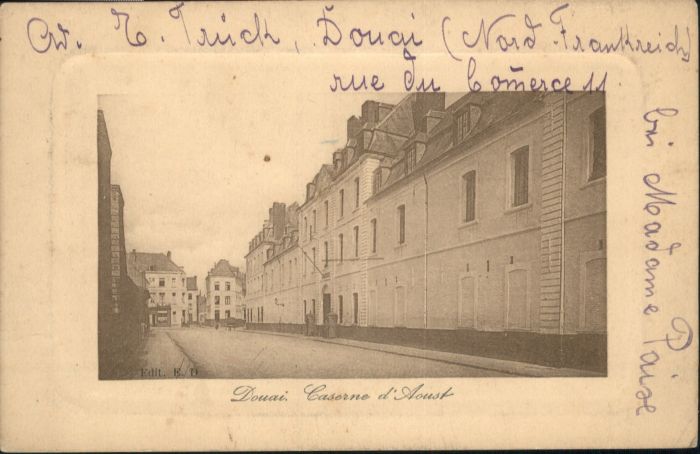 Ad. E. Trück, Douai (Nord-Frankreich)
rue du Comerce 11
bei Madame Paise
Edit. E. D
Douai. Caserne d'Aoust